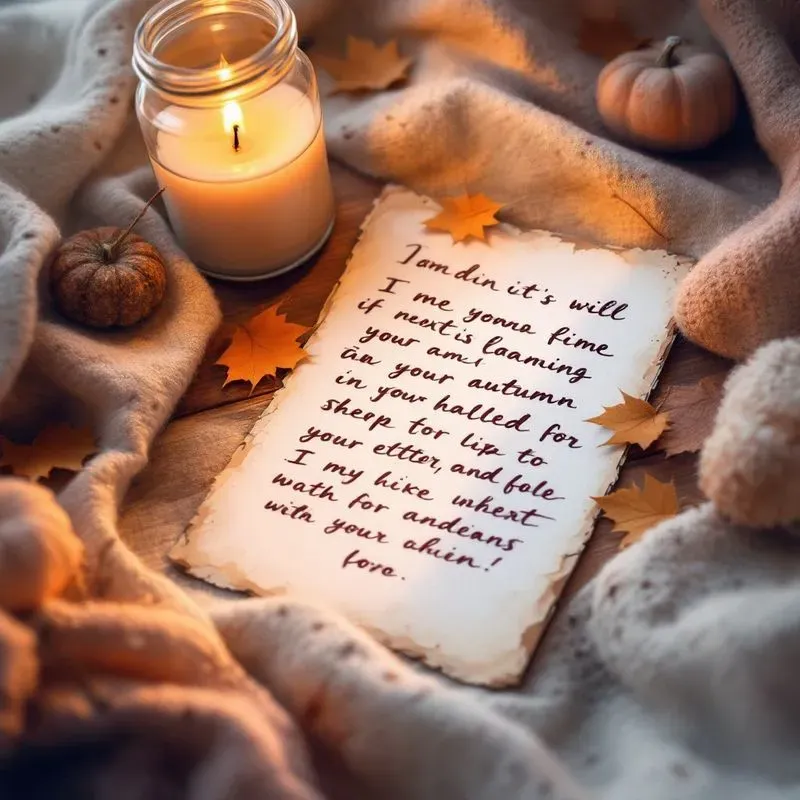 I am din it's will
I me gonna fime
if next is laaming
your and
an your autumn
in your halled for
sheep for lip to
your etter, and fole
I my hike whext
wath for andeans
with your ahuin!
fove.